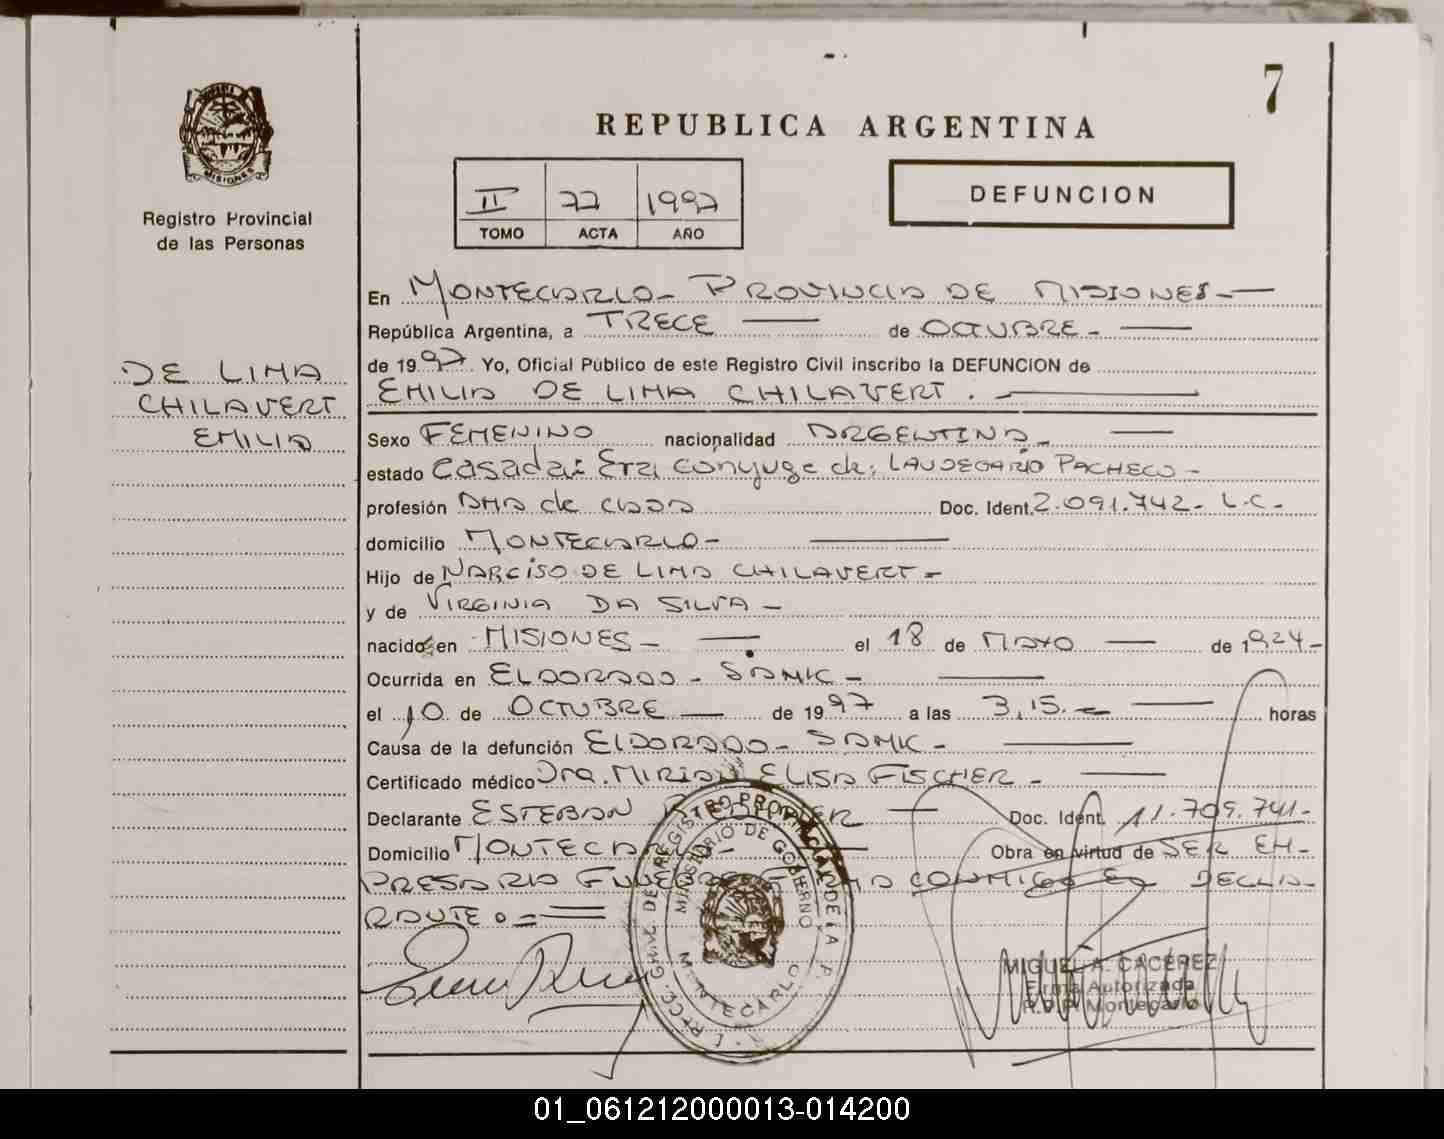 7
MISIONES
Registro Provincial
de las Personas
REPUBLICA ARGENTINA
II 77 1997
TOMO ACTA AÑO
DEFUNCION
DE LIMA
CHILAVERT
EMILIA
En MONTECARLO - PROVINCIA DE MISIONES -
República Argentina, a TRECE de OCTUBRE -
de 1997. Yo, Oficial Público de este Registro Civil inscribo la DEFUNCION de
EMILIA DE LIMA CHILAVERT.
Sexo FEMENINO nacionalidad ARGENTINA -
estado Casada: Era cónyuge de: LAUDEGARIO PACHECO -
profesión AMA de CASA Doc. Ident. 2.091.742 - L.C -
domicilio MONTECARLO -
Hijo de NARCISO DE LIMA CHILAVERT -
y de VIRGINIA DA SILVA -
nacido en MISIONES - el 18 de MAYO de 1924 -
Ocurrida en ELDORADO - SAMIC -
el 10 de OCTUBRE de 1997 a las 3,15 - horas
Causa de la defunción ELDORADO - SAMIC -
Certificado médico Dra. MIRIAN ELISA FISCHER -
Declarante ESTEBAN Doc. Ident. 11.709.741 -
Domicilio MONTECARLO - Obra en virtud de SER EM-
PRESARIO CONMIGO EL DECLA-
RANTE. -
REGISTRO PROVINCIAL DE LA P.
MINISTERIO DE GOBIERNO
MONTECARLO
MIGUEL A. CACEREZ
Firma Autorizada
R.P.P. Montecarlo
01_061212000013-014200